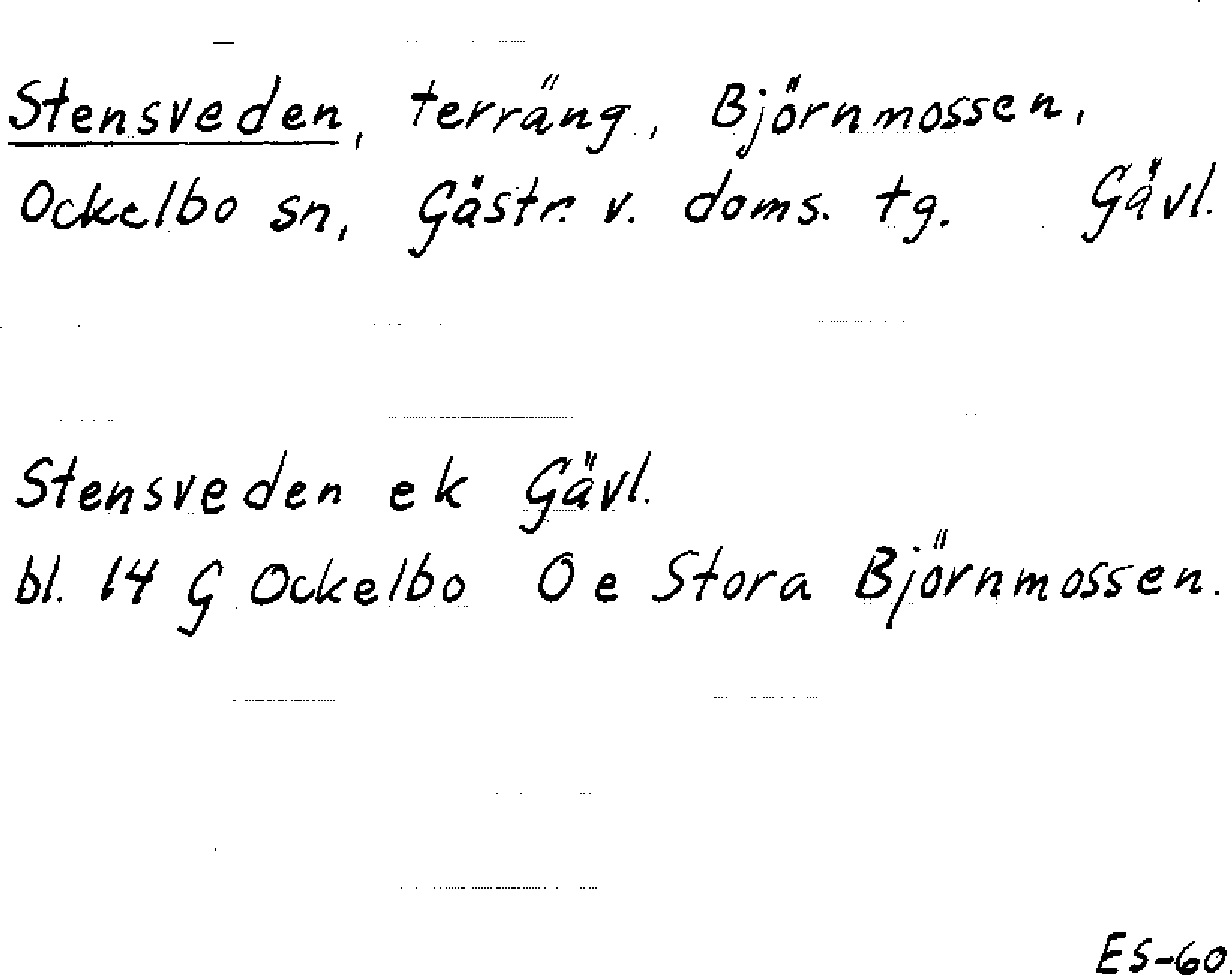 Stensveden, terräng, Björnmossen,
Ockelbo sn, Gästr. v. doms. tg. Gävl.
Stensveden ek Gävl.
bl. 14 G Ockelbo 0 e Stora Björnmossen.
ES-60.